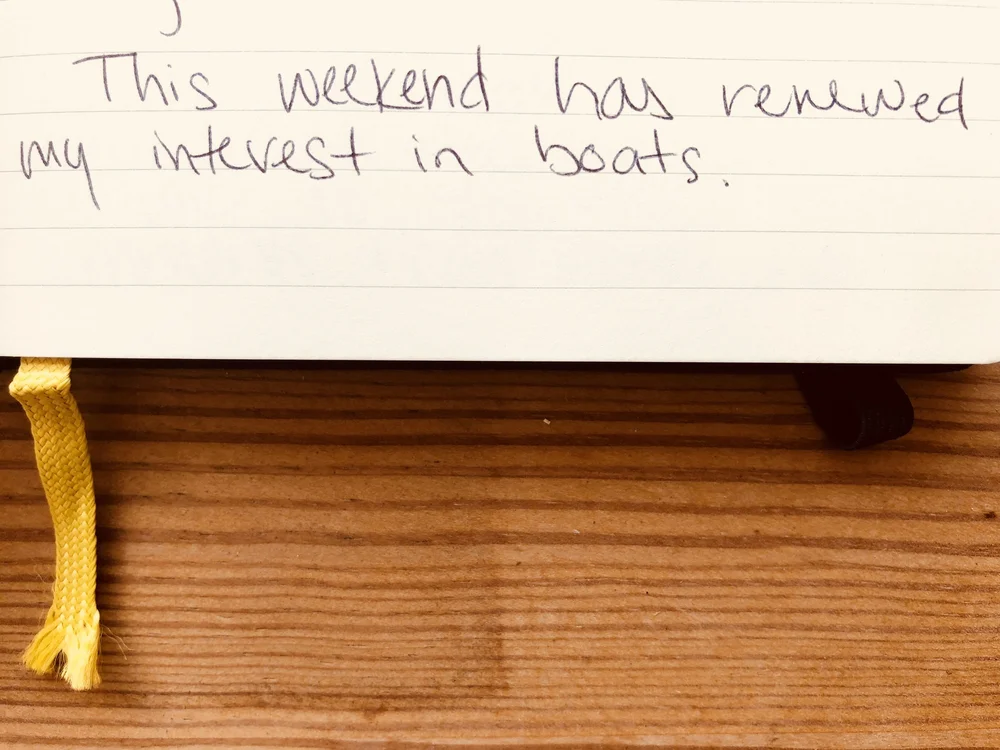 This weekend has renewed
my interest in boats.